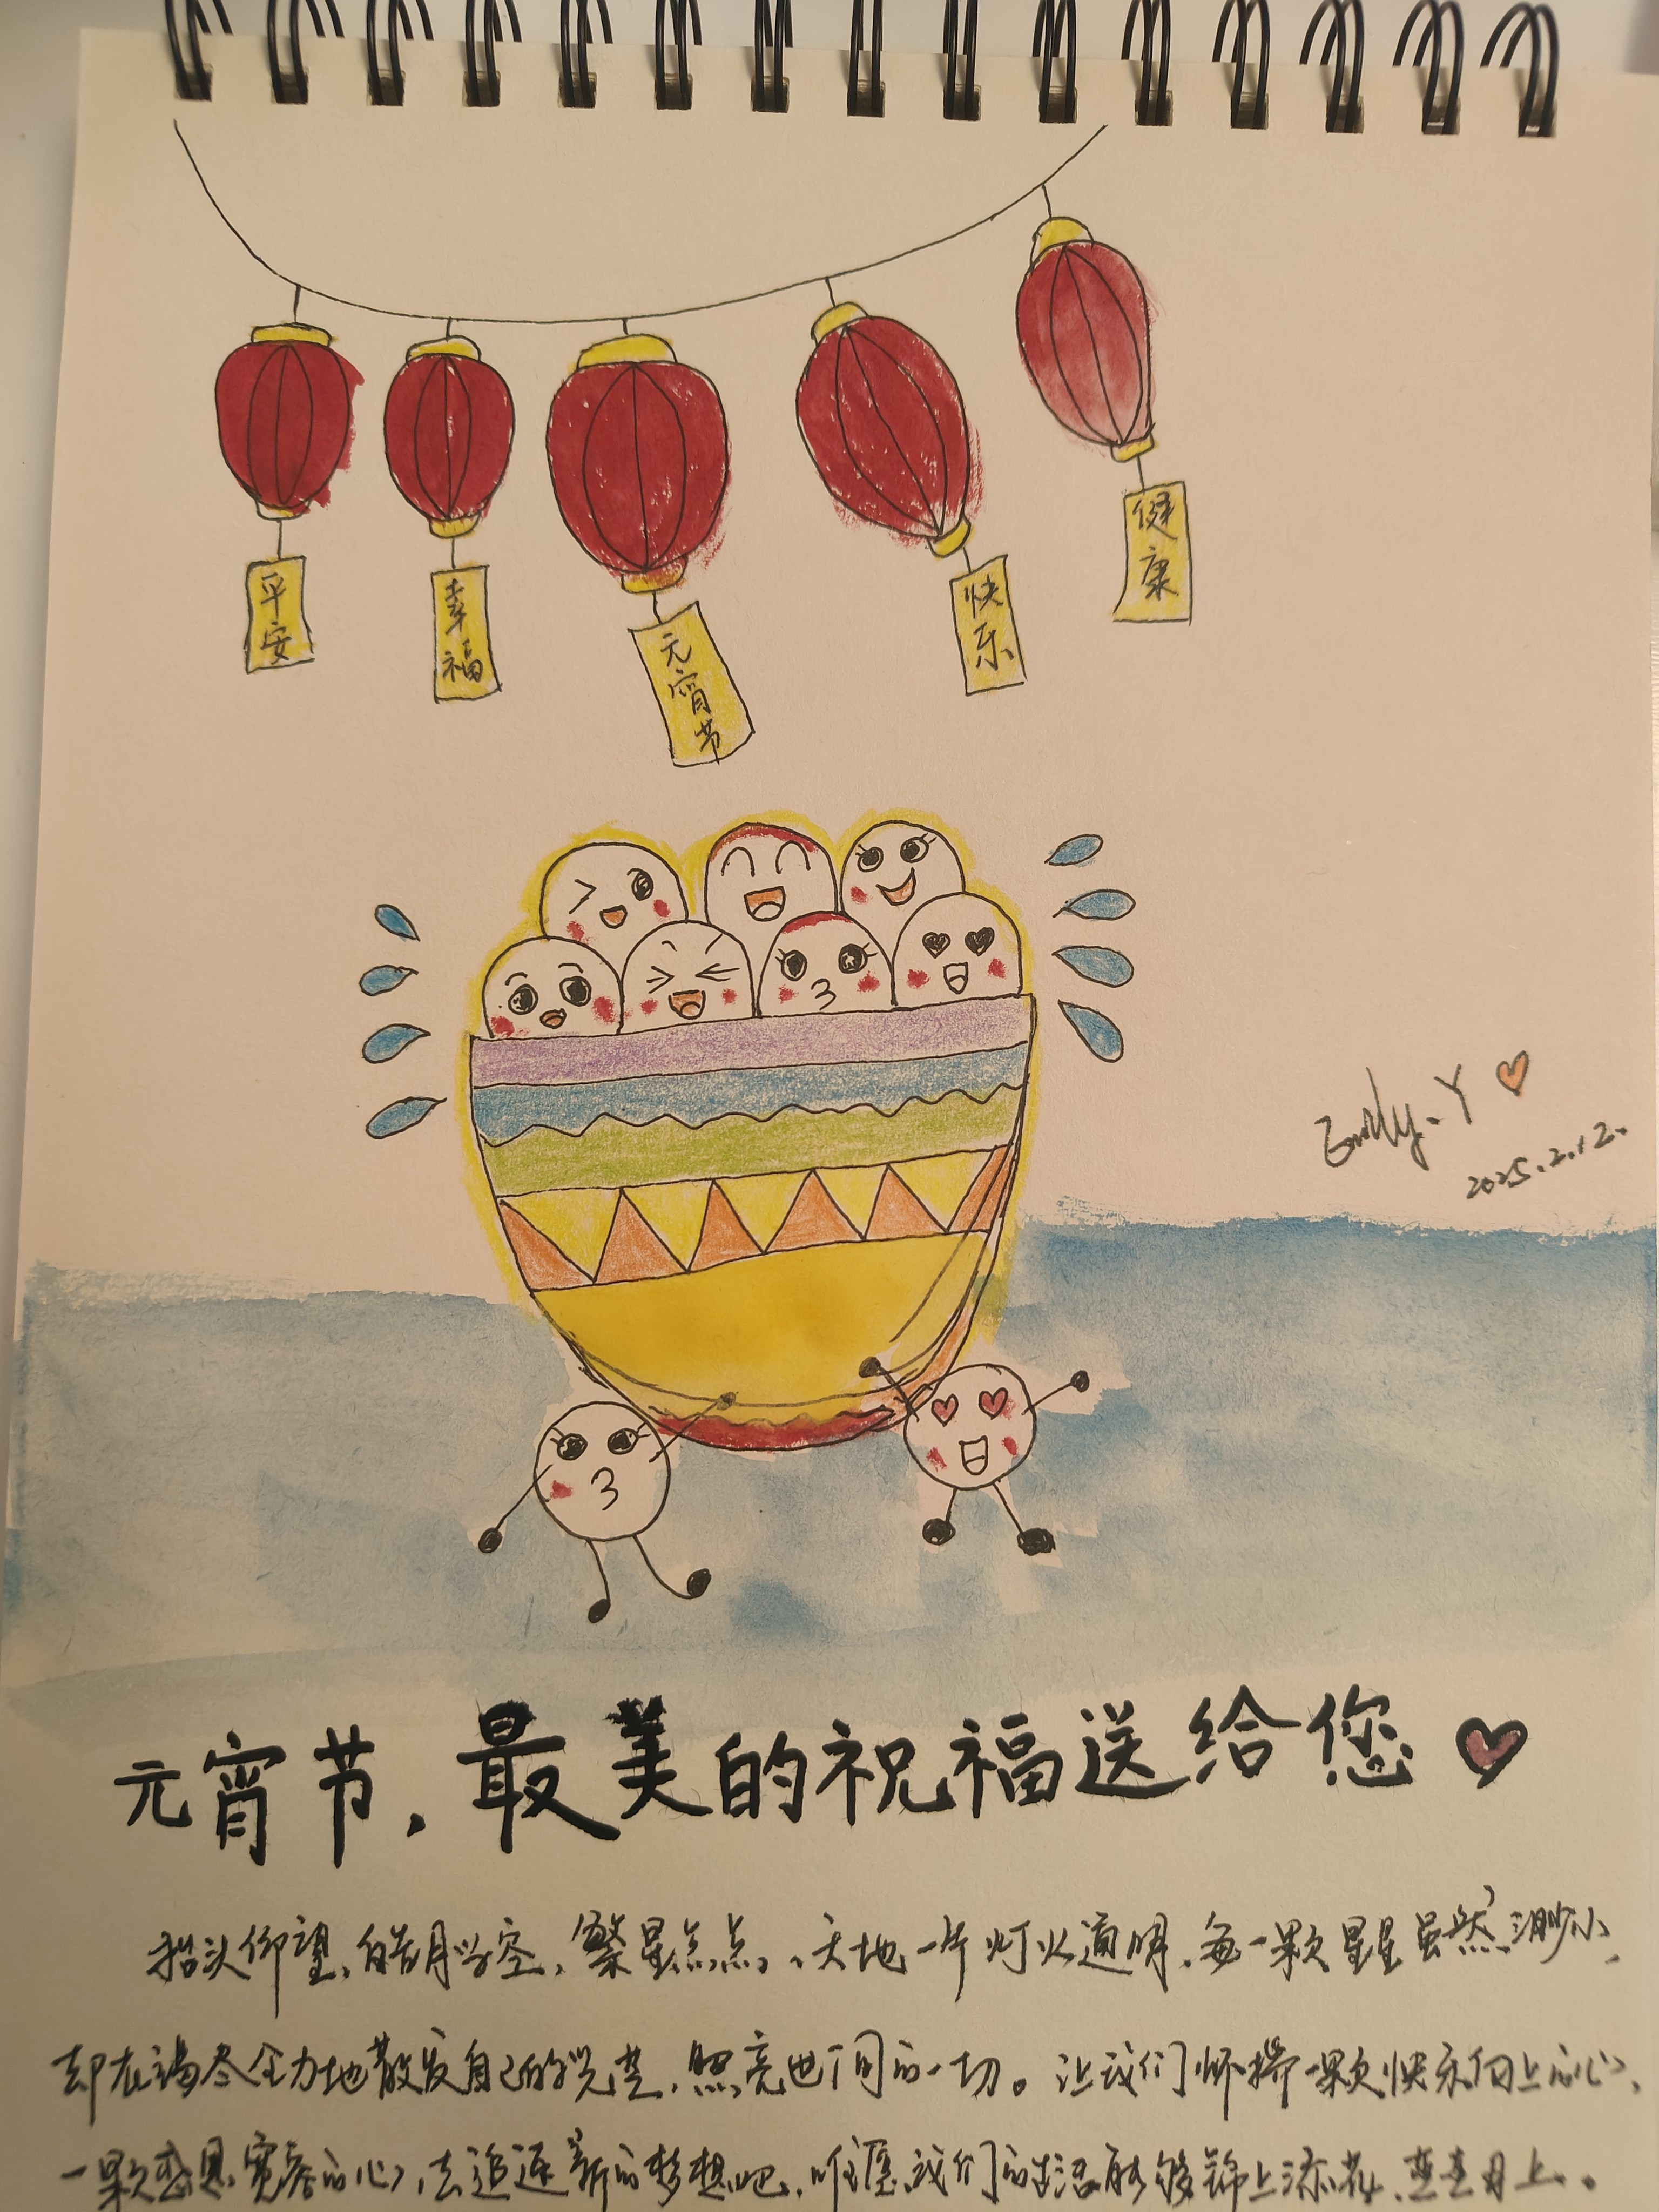 平安
幸福
元宵节
快乐
健康
Emily.Y
2025.2.12.
元宵节,最美的祝福送给您
抬头仰望,皓月当空,繁星点点,天地一片灯火通明,每一颗星星虽然渺小,
却在竭尽全力地散发自己的光芒,照亮世间的一切。让我们怀揣一颗快乐向上的心,
一颗感恩宽容的心,去追逐新的梦想吧,唯愿我们的生活能够锦上添花,蒸蒸日上。